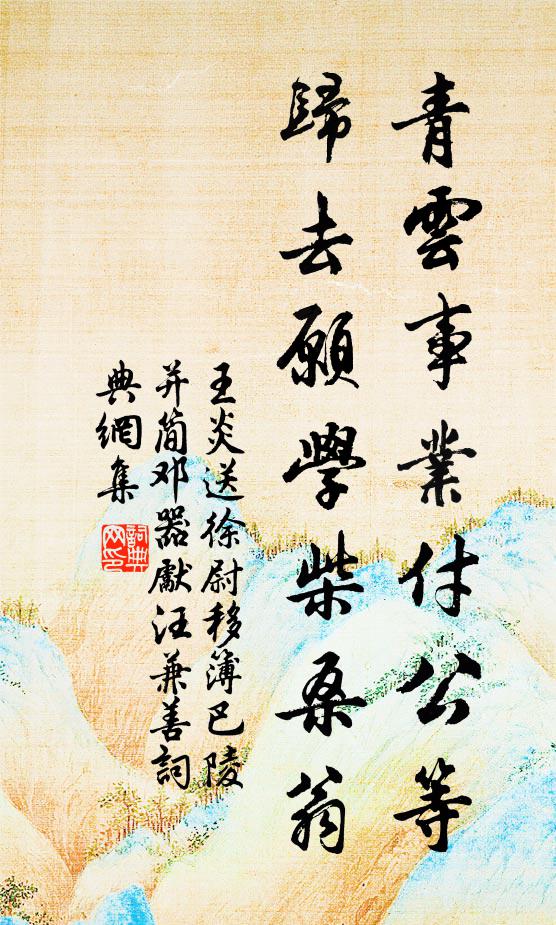 青雲事業付公等
歸去願學柴桑翁
王炎送徐尉移簿巴陵
并簡邓器獻汪兼善詞
典網集
詞典
网印